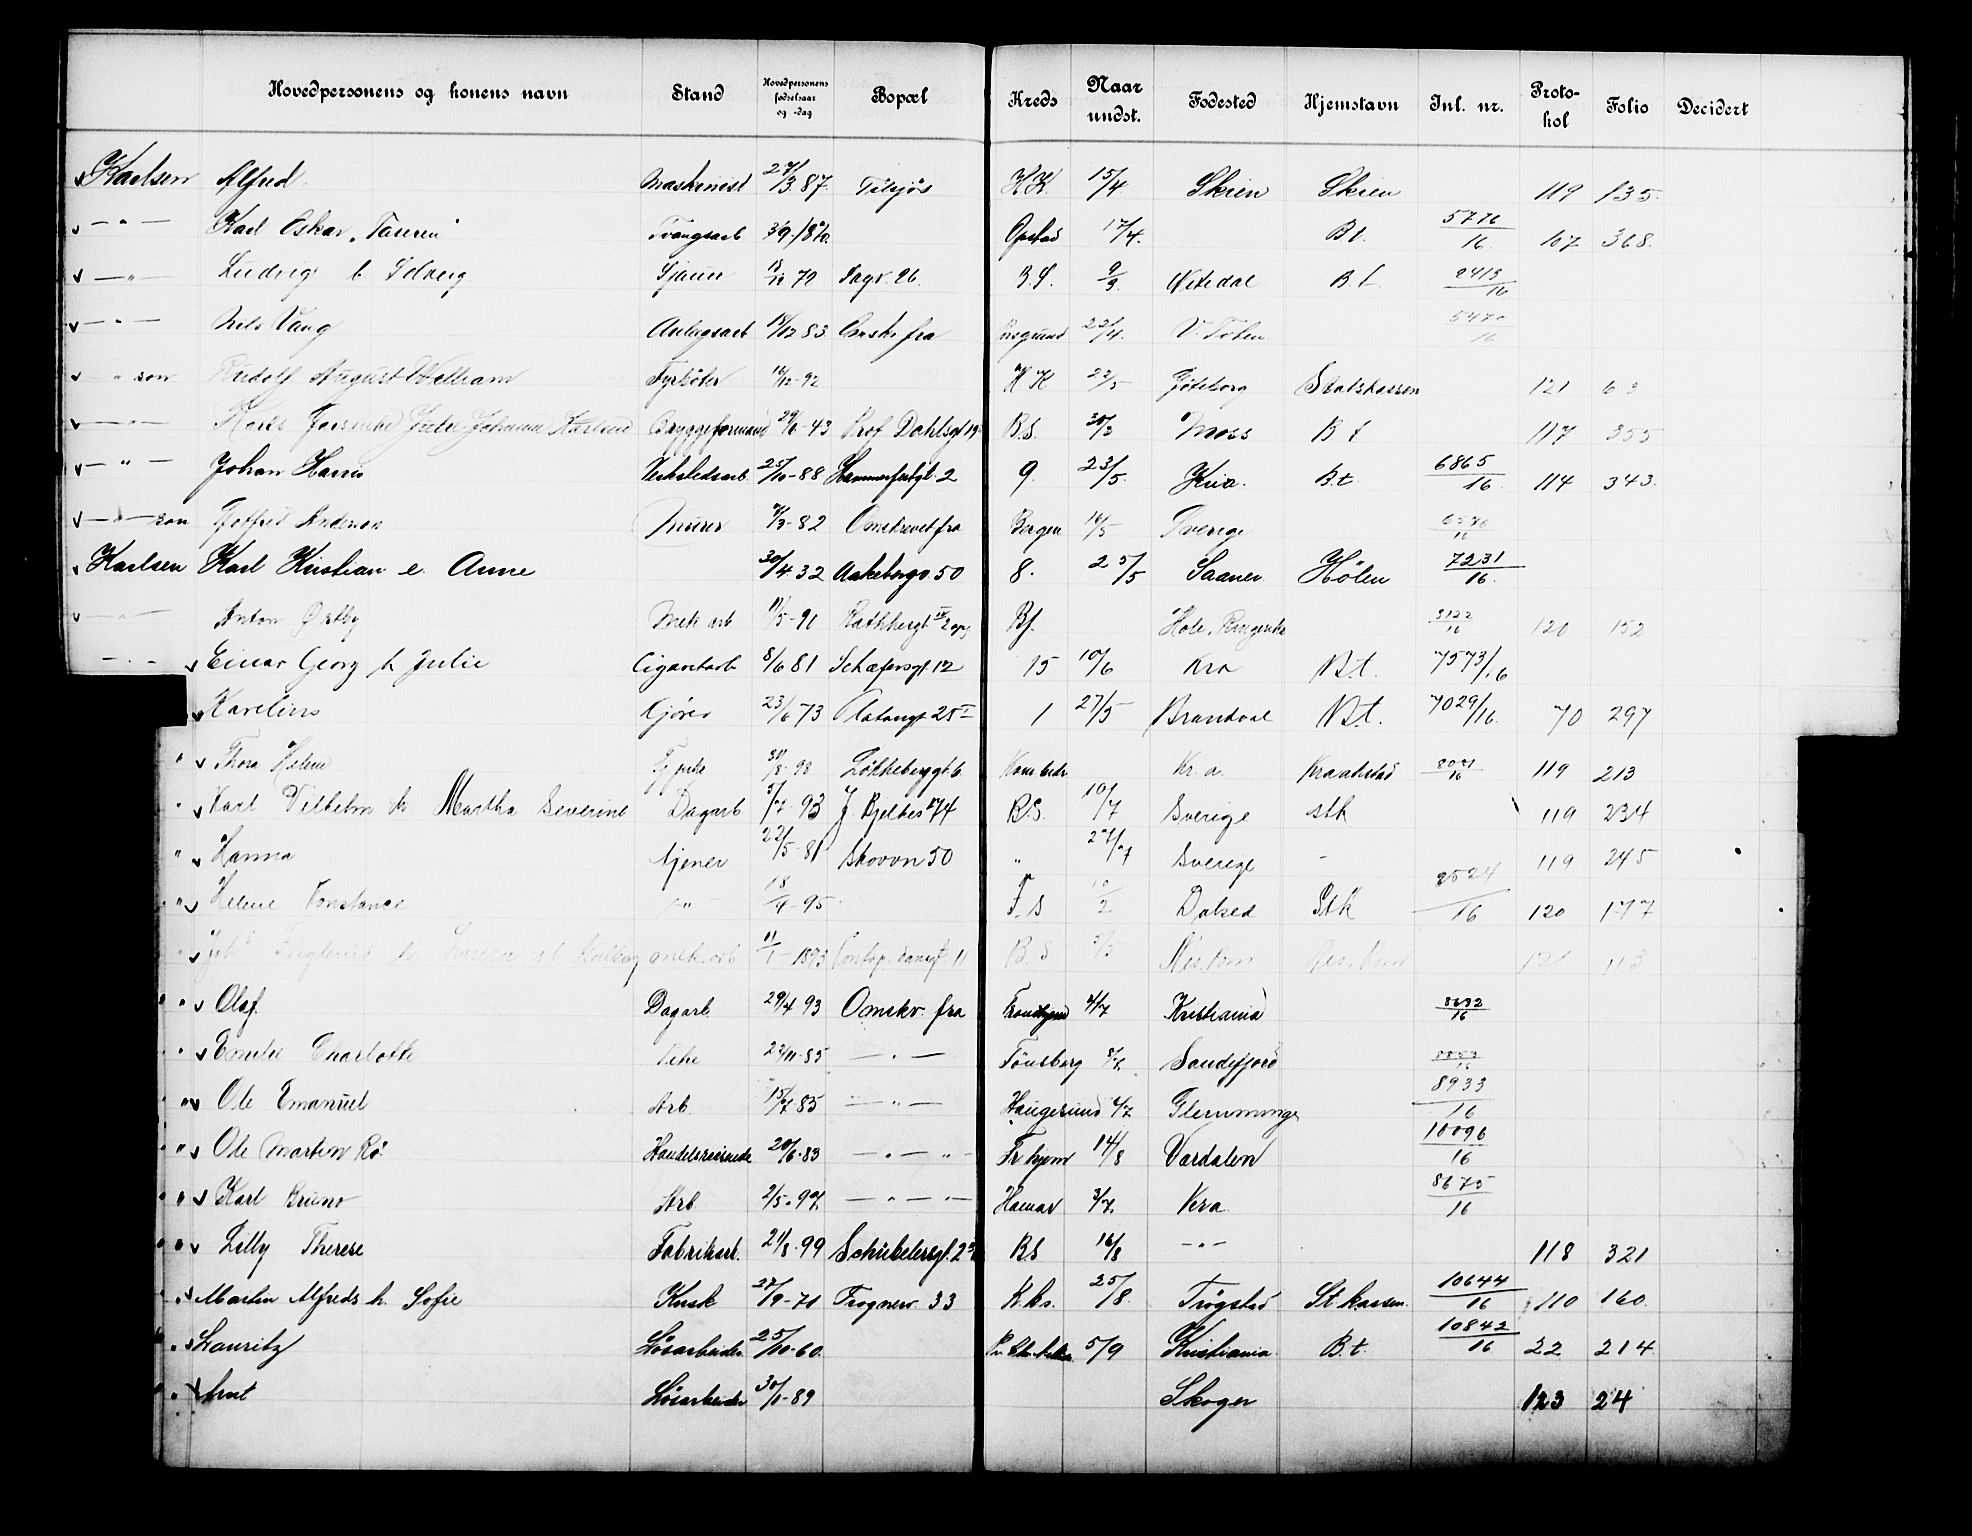 Hovedpersonens og konens navn Stand Hovedpersonens fødselsaar og -dag Bopæl Kreds Naar undst. Fødested Hjemstavn Inl. nr. Protokol Folio Decidert
Karlsen Alfred Maskinist 27/3 87 Tilsjøs H.K. 15/4 Skien Skien 119 135
— " — Karl Oskar "Taterен" Tvangsarb Opstad 17/4 B.t. 5776/16 107 368
— " Ludvig h Solveig Sjauer 72 Sagv. 26 B.S. 9/3 Nitedal B.t. 2413/16
— " — Nils Vang Anlægsarb 12 83 Ønskes fra Porsgrund 23/4 V. Toten 5470/16
" son Rudolf August William Fyrbøter 16/12-92 H K 22/5 Gøteborg Statskassen 121 63
— " — Johanne Karlsen Bryggeformand 29/6-43 Prof Dahlsgt 19 B.S. 30/3 Moss B t 117 355
— " — Johan Hans Verkstedsarb 25/10-88 Hammerfestgt. 2 9. 23/5 Kria. B.t. 6865/16 114 343
— " — son Gotfred Anderson Murer 82 Omskrevet fra Bergen 16/5 Sverige 6576/16
Karlsen Karl Kristian e. Anne 30/4 32 Aakebergv. 50 8. 25/5 Saaner Hølen 7231/16
— " — Anton Østby Mek arb 11/5-91 Rathkesgt Bf. Hole, Ringerike 3122/16 120 152
— " — Einar Georg h Julie Cigaretarb 8/6 81 Schæfersgt 12 15 10/6 Kra B.t. 7573/16
Karelius Kjører 23/6 73 Platousgt 25 I 1 27/5 Brandval B.t. 7029/16 70 297
" Thora Helene Tjen 31/8-98 Løkkeberggt. 6 Kr. a. Kraakstad 8081/16 119 213
" Karl Vilhelm h Martha Severine Dagarb 5/7-93 J Bjelkes 74 B.S. 10/7 Sverige Stk 119 234
" Hanna tjener 22/5-81 Skovvn 50 " 27/7 Sverige - 119 245
" Helene Konstance — " — 18/9-95 F.S 10/2 Dalsed Stk 2524/16 120 177
mek. arb 11/1-1893 11 B.S 5/5 Nes, 121 113
" Olaf Dagarb 29/4 93 Omskr. fra Trondhjem 4/7 Kristiania 8632/16
" Emilie Charlotte 23/11-85 — " — Tønsberg 8/7 Sandefjord 8853/16
" Ole Emanuel Arb. 15/7-85 — " — Haugesund 4/7 Glemminge 8933/16
" Ole Martin Rø Handelsreisende 20/6-83 — " — " — Tr.hjem 14/8 Værdalen 10096/16
" Karl Bruno Arb 2/5-97 — " — " — Hamar 3/7 Kra 8675/16
" Lilly Therese Fabrikarb. 21/8-99 Schübelersgt. B.S 16/8 — " — 118 321
" Martin Alfreds h. Sofie Kusk 27/9-71 Frognerv. 33 K.ks. 25/8 Trøgstad St. kassen 10644/16 110 160
" Lauritz Løsarbeider 25/10-60 5/9 Kristiania B.t. 10842/16 22 214
" Arnt Løsarbeider 30/1-89 Skoger 123 24